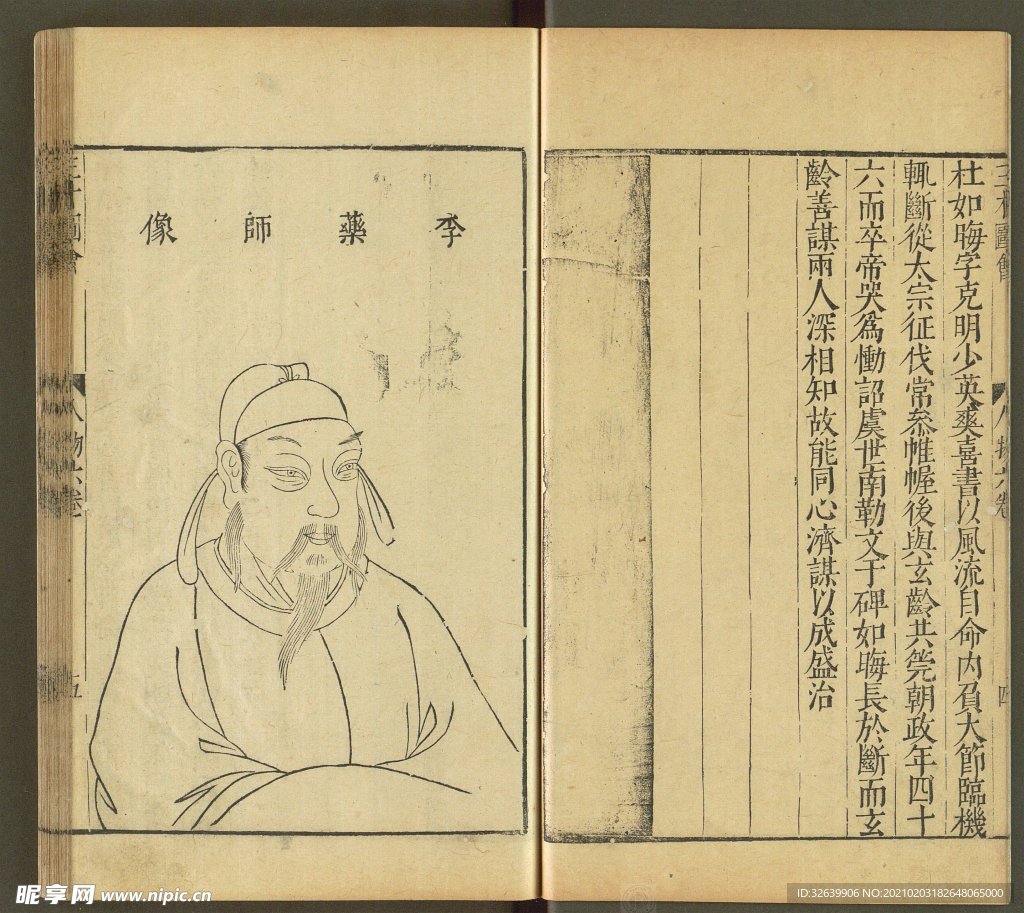 杜如晦字克明少英爽喜書以風流自命内負大節臨機
輒斷從太宗征伐常叅帷幄後與玄齡共筦朝政年四十
六而卒帝哭為慟詔虞世南勒文于碑如晦長於斷而玄
齡善謀兩人深相知故能同心濟謀以成盛治
三才圖會
人物六卷
四
李藥師像
三才圖會
人物六卷
五
昵享网 www.nipic.cn
ID:32639906 NO:20210203182648065000